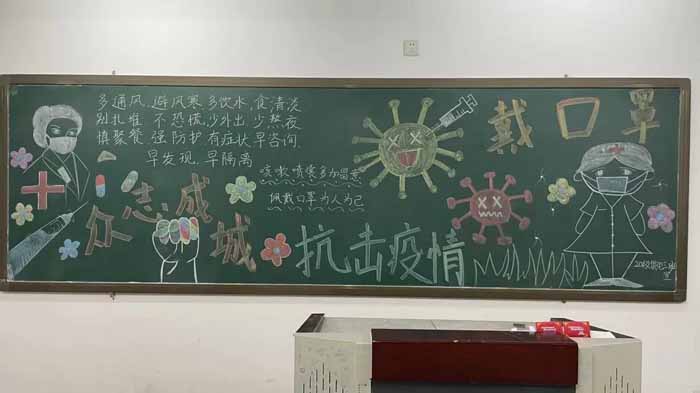 多通风,避风寒,多饮水,食清淡
别扎堆,不恐慌,少外出,少熬夜
慎聚餐,强防护,有症状,早咨询
早发现,早隔离
咳嗽喷嚏多加留意
佩戴口罩为人为己
众志成城
抗击疫情
戴口罩